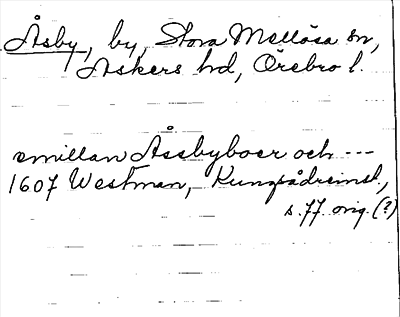 Åsby, by, Stora Mellösa sn,
Askers hd, Örebro l.
emillan Åssbyboer och ---
1607 Westman, Kungsådreinst.,
s. 77. orig. (?)